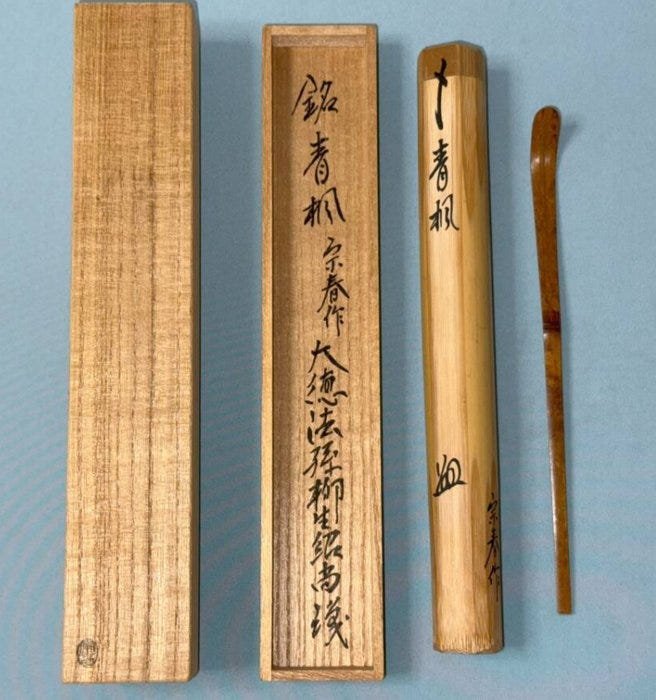 銘 青楓 宗春作 大徳法孫柳生紹尚識
青楓
宗春作